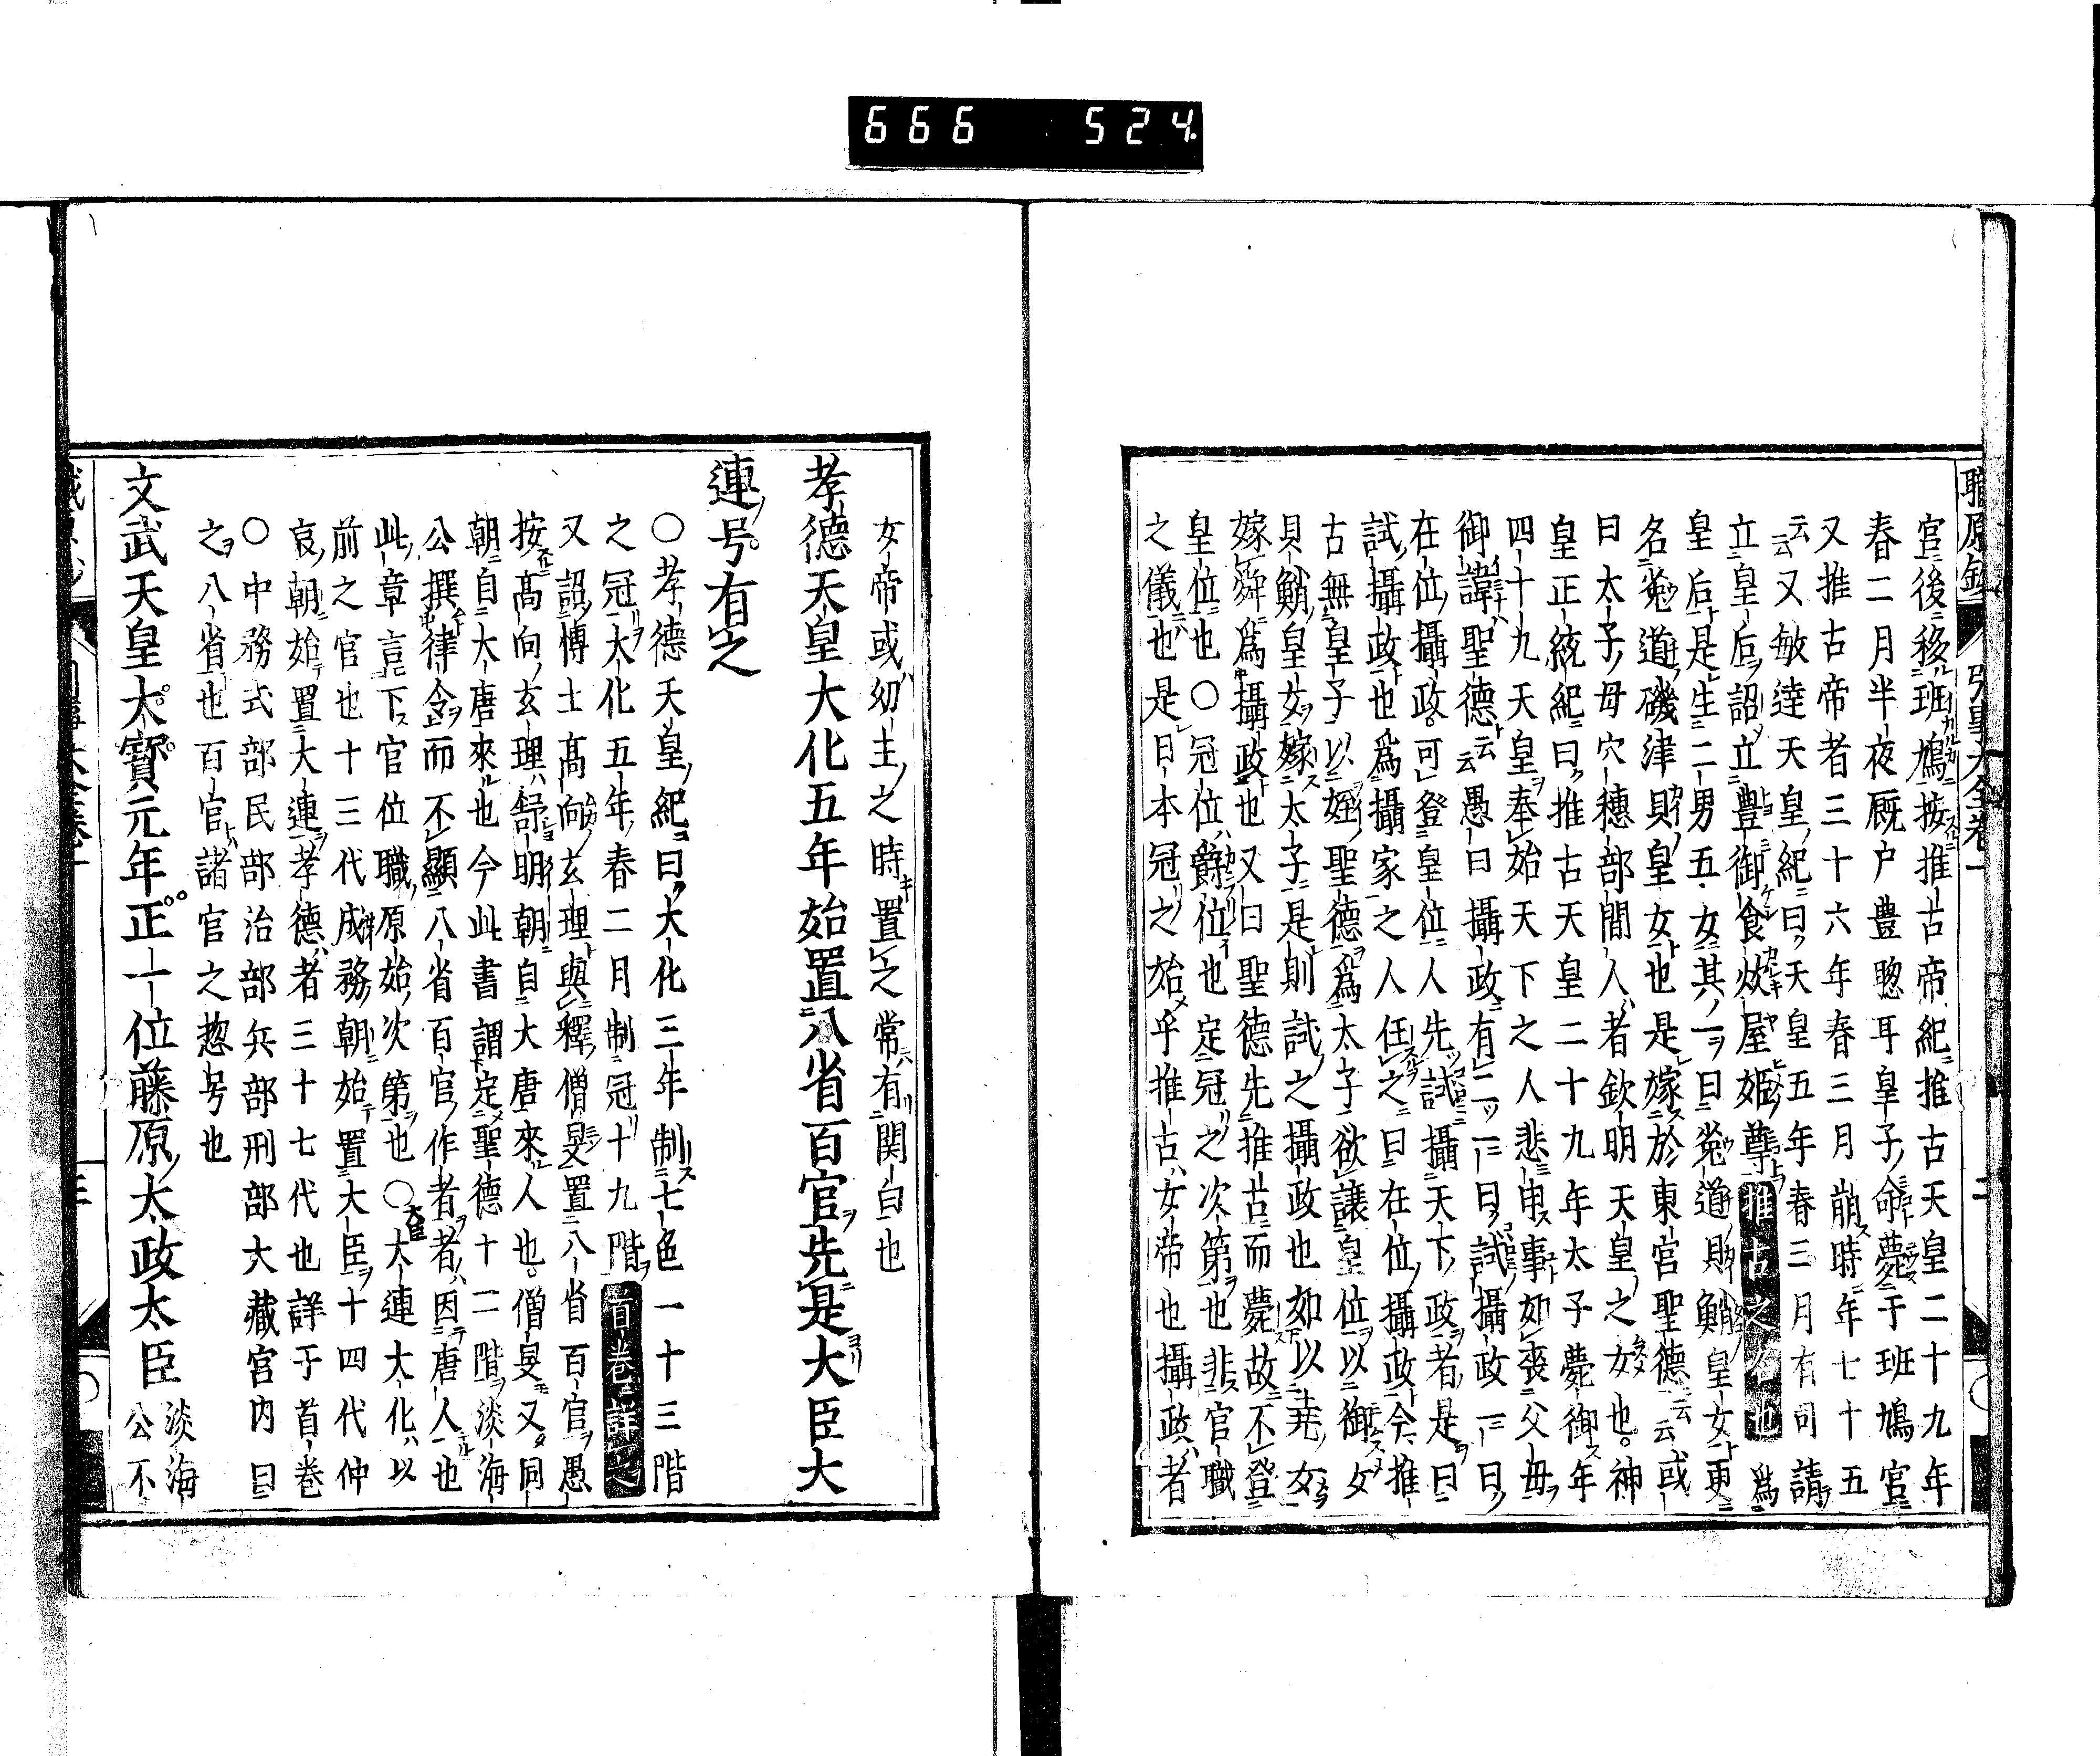 666 524
職原鈔 引事大全卷一
宮後移班鳩按推古帝紀推古天皇二十九年
春二月半夜厩戸豊聰耳皇子命薨于班鳩宮
又推古帝者三十六年春三月崩時年七十五
云云又敏達天皇紀曰天皇五年春三月有司請
立皇后詔立豊御食炊屋姫尊推古之名也爲
皇后是生二男五女其一曰菟道貝鮹皇女更
名菟道磯津貝皇女也是嫁於東宮聖德云云或
曰太子母穴穗部間人者欽明天皇之女也神
皇正統紀曰推古天皇二十九年太子薨御年
四十九天皇奉始天下之人悲申事如喪父母
御諱聖德云云愚曰攝政有二一曰試攝政一曰
在位攝政可登皇位人先試攝天下政者是曰
試攝政也爲攝家之人任之曰在位攝政今推
古無皇子以姪聖德爲太子欲讓皇位以御女
貝鮹皇女嫁太子是則試之攝政也如以堯女
嫁舜爲攝政也又曰聖德先推古而薨故不登
皇位也〇冠位爵位也定冠之次第也非官職
之儀也是日本冠之始乎推古女帝也攝政者
女帝或幼主之時置之常有関白也
孝德天皇大化五年始置八省百官先是大臣大
連号有之
〇孝德天皇紀曰大化三年制七色一十三階
之冠大化五年春二月制冠十九階首卷詳之
又詔博士髙向玄理與釋僧旻置八省百官愚
按髙向玄理舒明朝自大唐來人也僧旻又同
朝自大唐來也今此書謂定聖德十二階淡海
公撰律令而不顯八省百官作者者因唐人也
此章言下官位職原始次第也〇大臣大連大化以
前之官也十三代成務朝始置大臣十四代仲
哀朝始置大連孝德者三十七代也詳于首卷
〇中務式部民部治部兵部刑部大藏宮内曰
之八省也百官諸官之惣号也
文武天皇大寳元年正一位藤原太政太臣淡海
公不